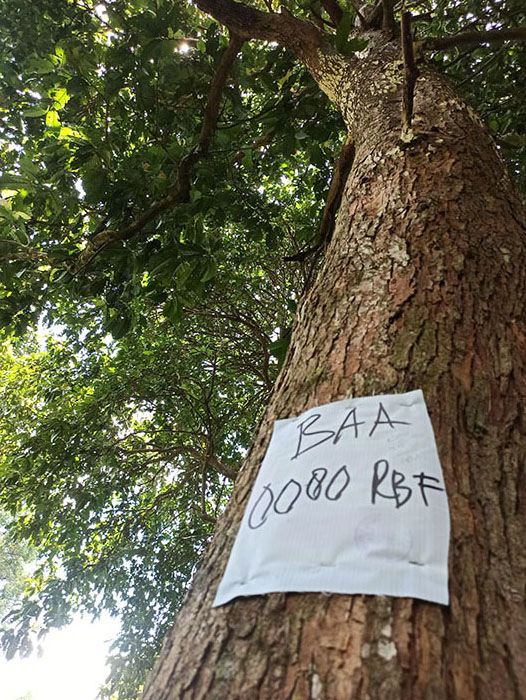 BAA
0080 RBF